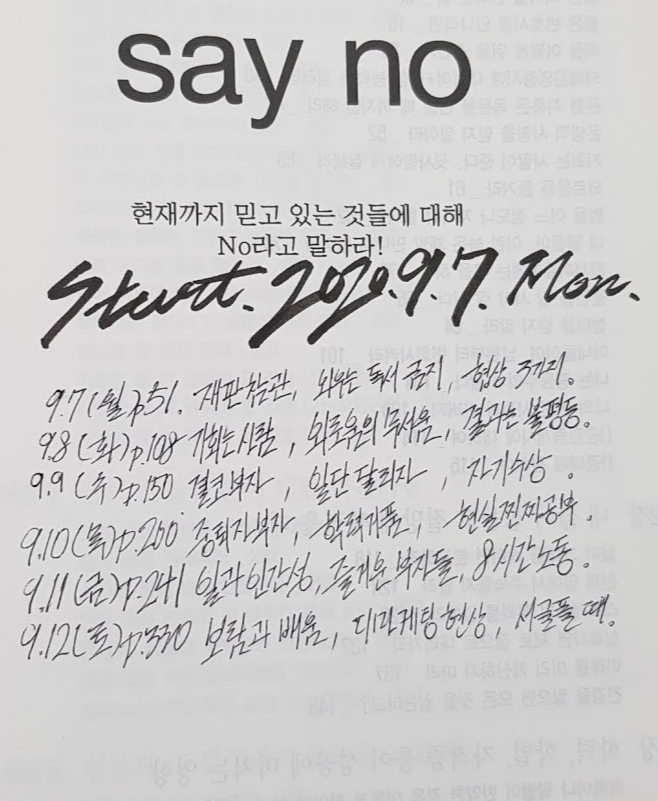 say no
현재까지 믿고 있는 것들에 대해
No라고 말하라!
Start. 2020. 9. 7. Mon.
9.7(월)p.51. 재판참관, 외우는 독서금지, 협상 3가지.
9.8(화)p.108 기회는사람, 외로움의 무서움, 결과는 불평등.
9.9(수)p.150 결코부자, 일단달리자, 자기수상.
9.10(목)p.200 중퇴자부자, 학력거품, 현실찐짜공부
9.11(금)p.241 일과인간성, 즐거운 부자들, 8시간노동.
9.12(토)p.330 보람과 배움, 디마케팅현상, 서글플 때.